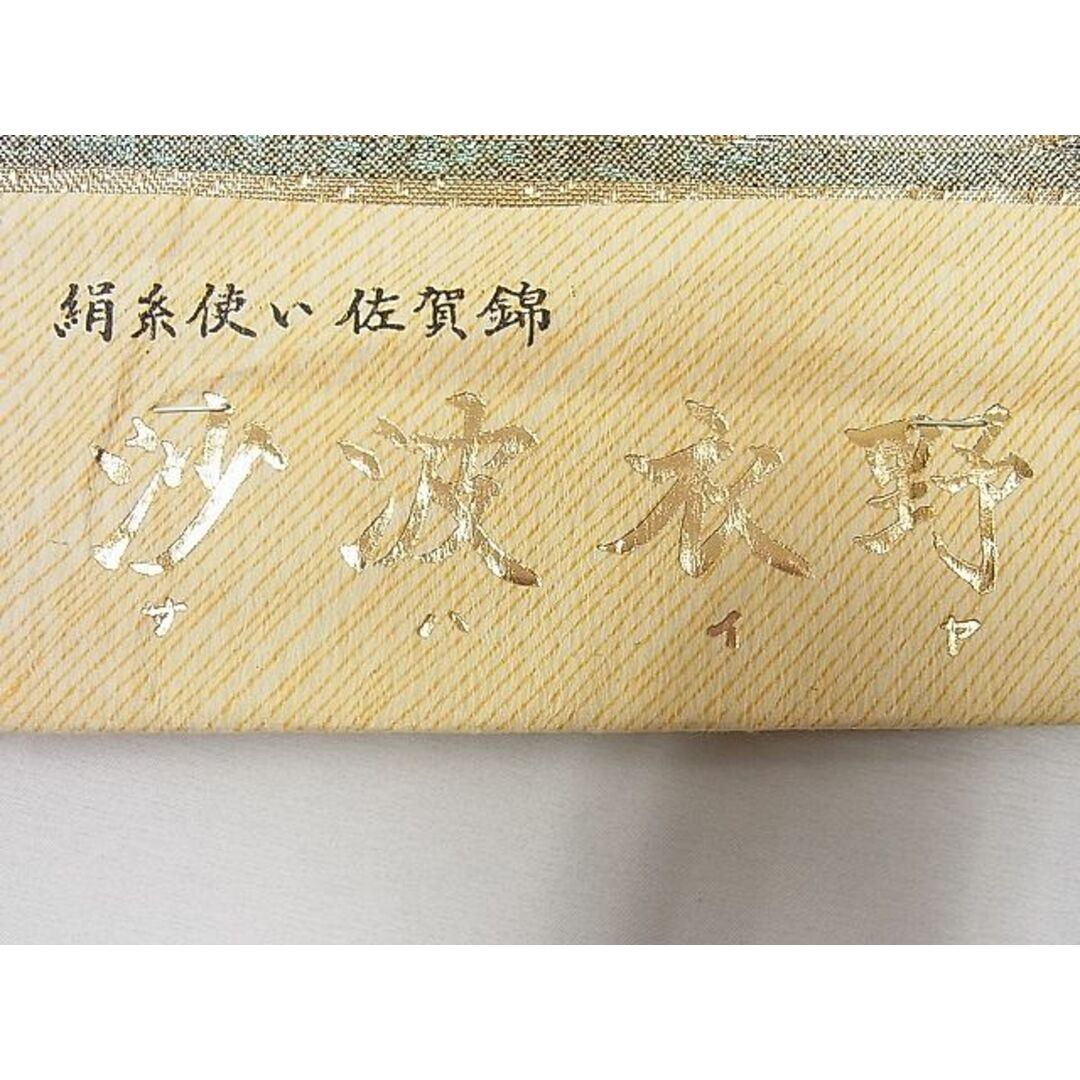 絹糸使い佐賀錦
沙波衣野
サ ハ イ ヤ